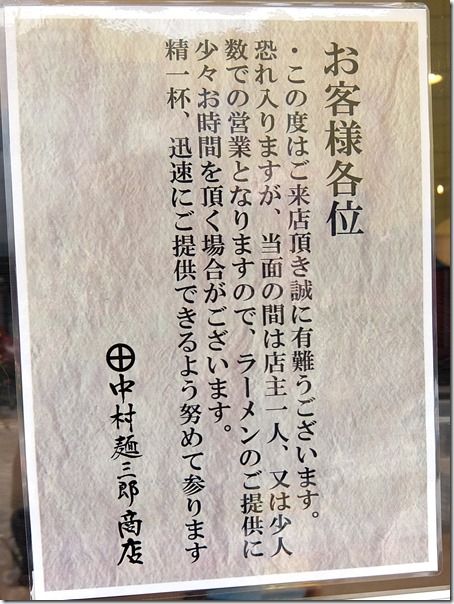 お客様各位
・この度はご来店頂き誠に有難うございます。
恐れ入りますが、当面の間は店主一人、又は少人
数での営業となりますので、ラーメンのご提供に
少々お時間を頂く場合がございます。
精一杯、迅速にご提供できるよう努めて参ります
中村麺三郎商店